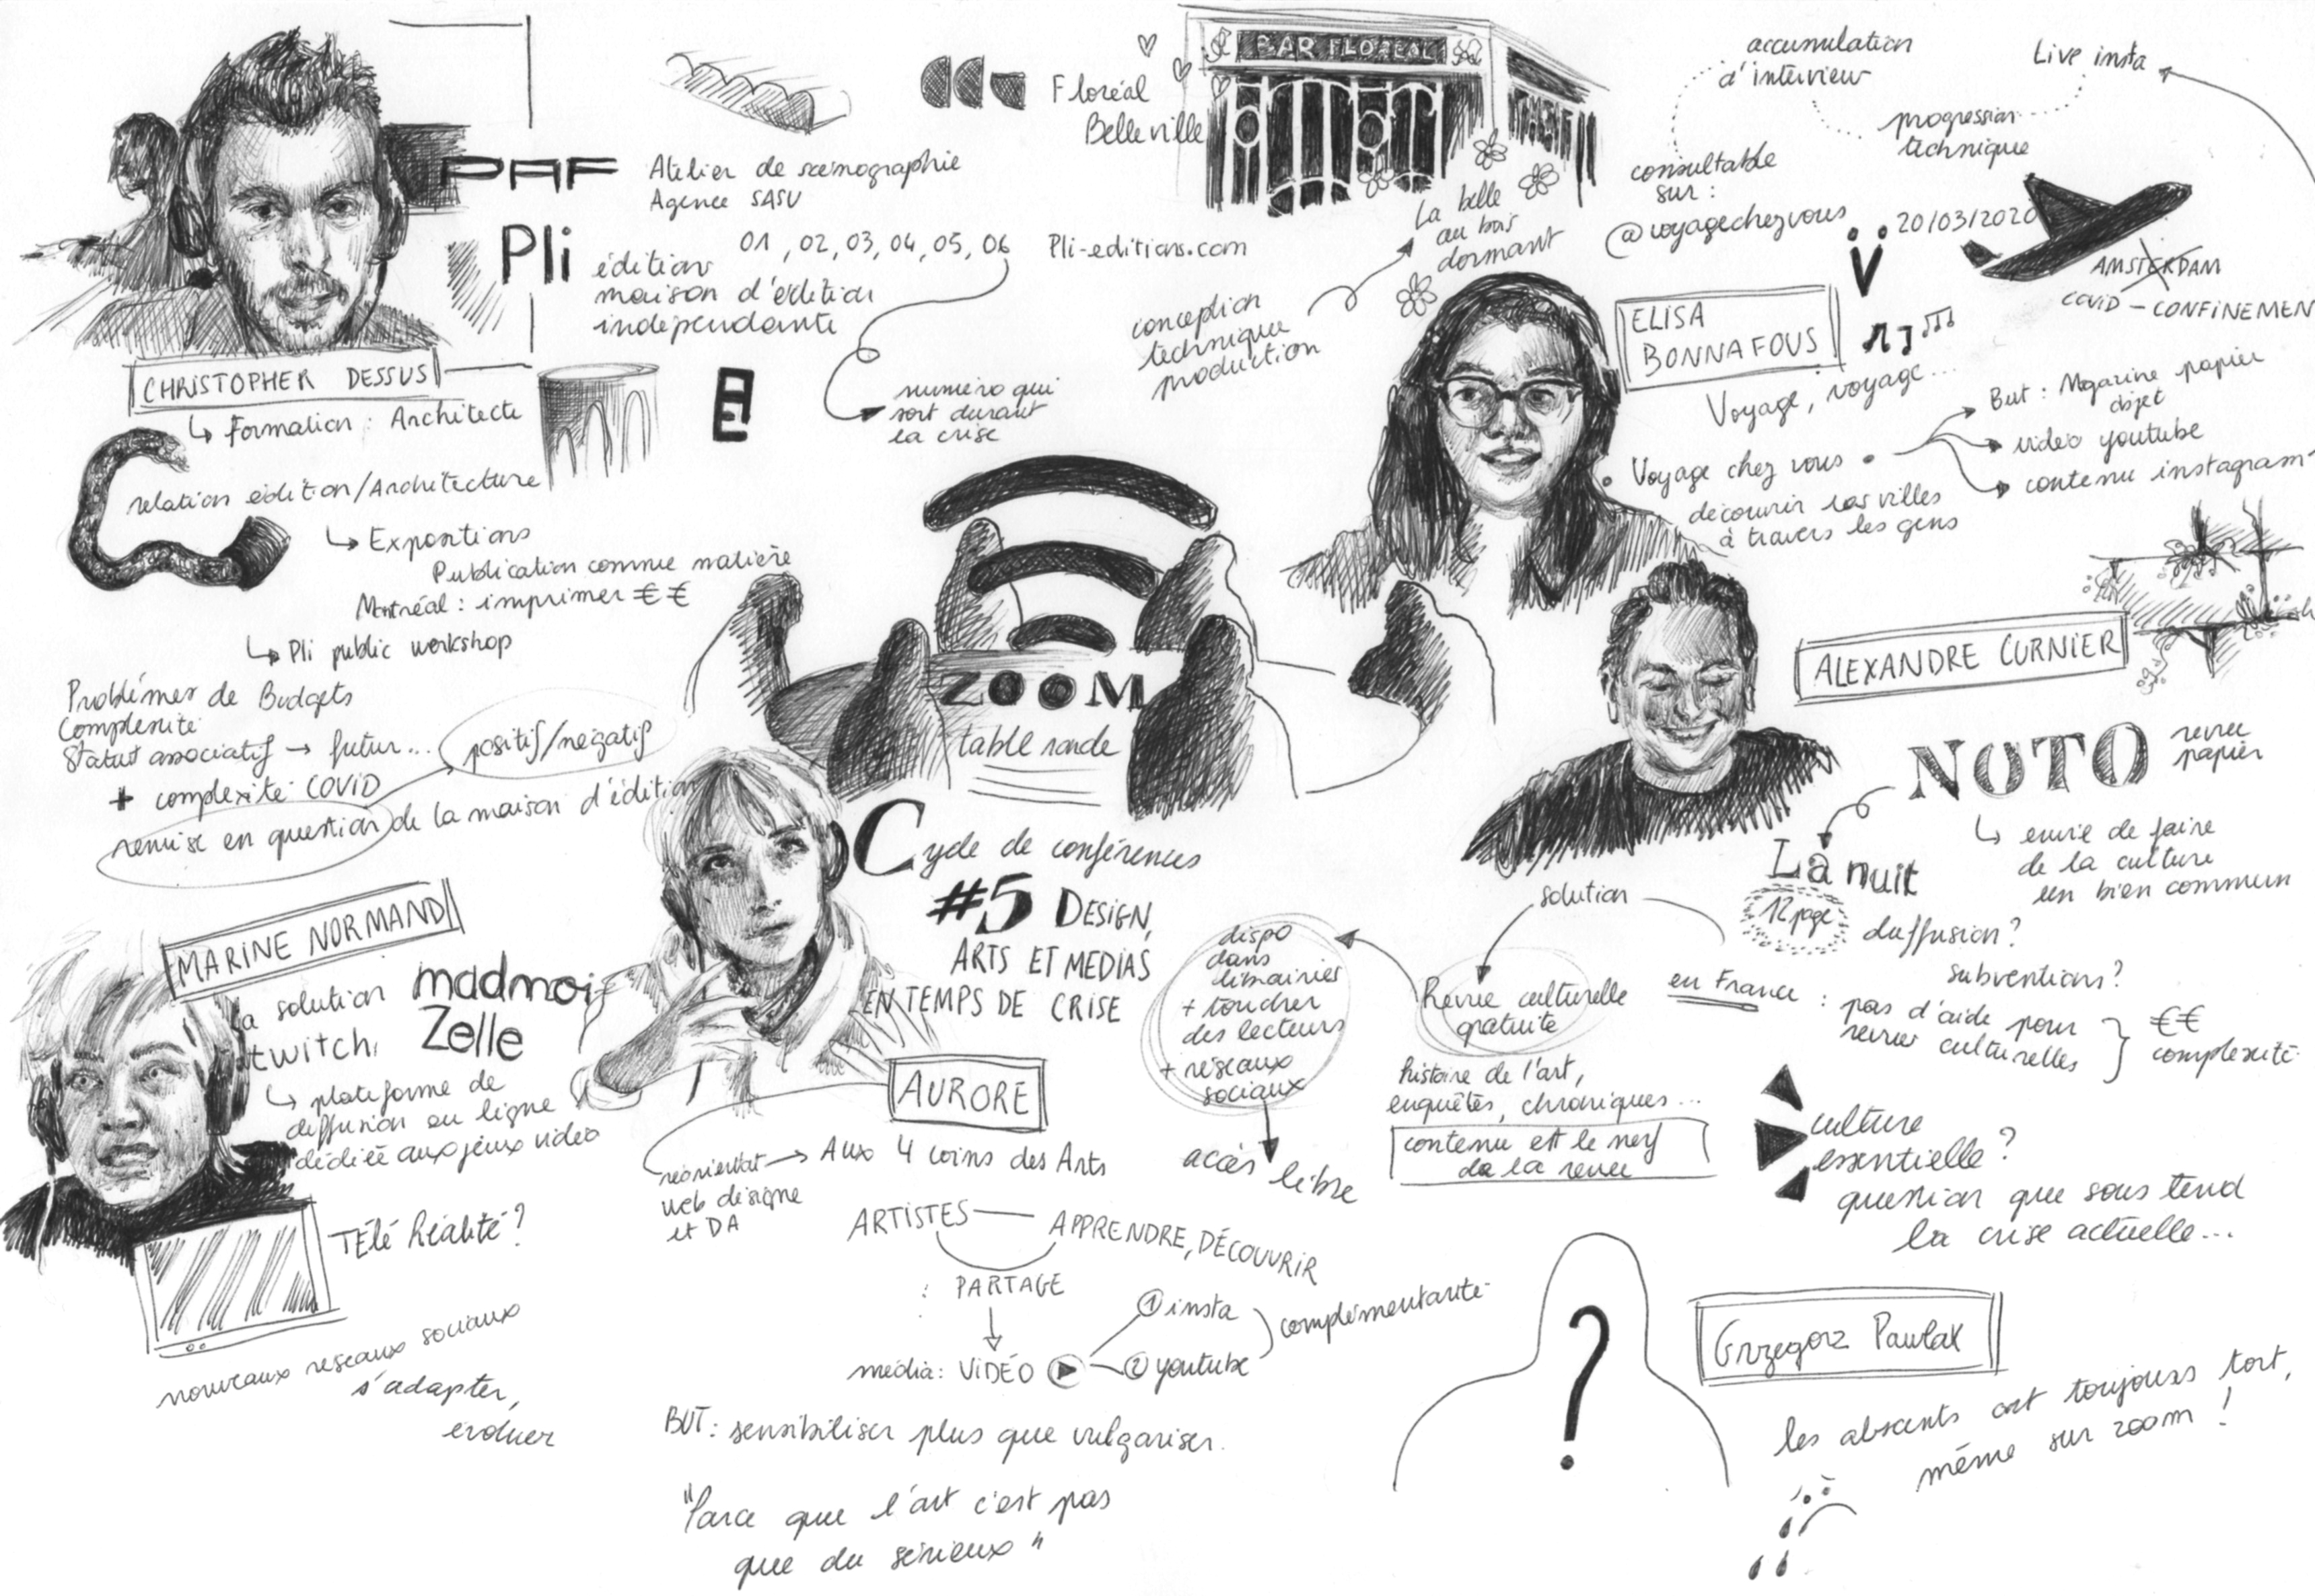 PAF
Atelier de scénographie
Agence SASU
Pli
édition
maison d'édition
indépendante
01, 02, 03, 04, 05, 06
Pli-editions.com
numéro qui
sort durant
la crise
CHRISTOPHER DESSUS
Formation : Architecte
relation édition/Architecture
Expositions
Publication comme matière
Montréal : imprimer € €
Pli public workshop
Problèmes de Budgets
Complexité
Statut associatif → futur...
positif/négatif
+ complexité COVID
remise en question de la maison d'édition
Floréal
Belleville
BAR FLORÉAL
La belle
au bois
dormant
conception
technique
production
accumulation
d'interview
Live insta
progression
technique
consultable
sur :
@voyagechezvous
20/03/2020
AMSTERDAM
COVID - CONFINEMEN
ELISA
BONNAFOUS
Voyage, voyage...
Voyage chez vous
découvrir les villes
à travers les gens
But : Magazine papier
objet
vidéo youtube
contenu instagram
ZOOM
table ronde
Cycle de conférences
#5 DESIGN,
ARTS ET MEDIAS
EN TEMPS DE CRISE
ALEXANDRE CURNIER
NOTO
revue
papier
envie de faire
de la culture
un bien commun
La nuit
12 page
diffusion?
subventions?
solution
Revue culturelle
gratuite
en France :
pas d'aide pour
revues culturelles
€€
complexité
dispo
dans
librairies
+ toucher
des lecteurs
+ réseaux
sociaux
accès libre
histoire de l'art,
enquêtes, chroniques...
contenu est le nerf
de la revue
culture
essentielle?
question que sous tend
la crise actuelle...
MARINE NORMAND
la solution
twitch
madmoi
Zelle
plateforme de
diffusion en ligne
dédiée aux jeux vidéo
Télé Réalité?
nouveaux réseaux sociaux
s'adapter,
évoluer
AURORE
réorientat → Aux 4 coins des Arts
web designe
et DA
ARTISTES — APPRENDRE, DÉCOUVRIR
: PARTAGE
média: VIDÉO
① insta
② youtube
complémentarité
BUT: sensibiliser plus que vulgariser.
"Parce que l'art c'est pas
que du sérieux"
?
Grzegorz Pawlak
les absents ont toujours tort,
même sur zoom !